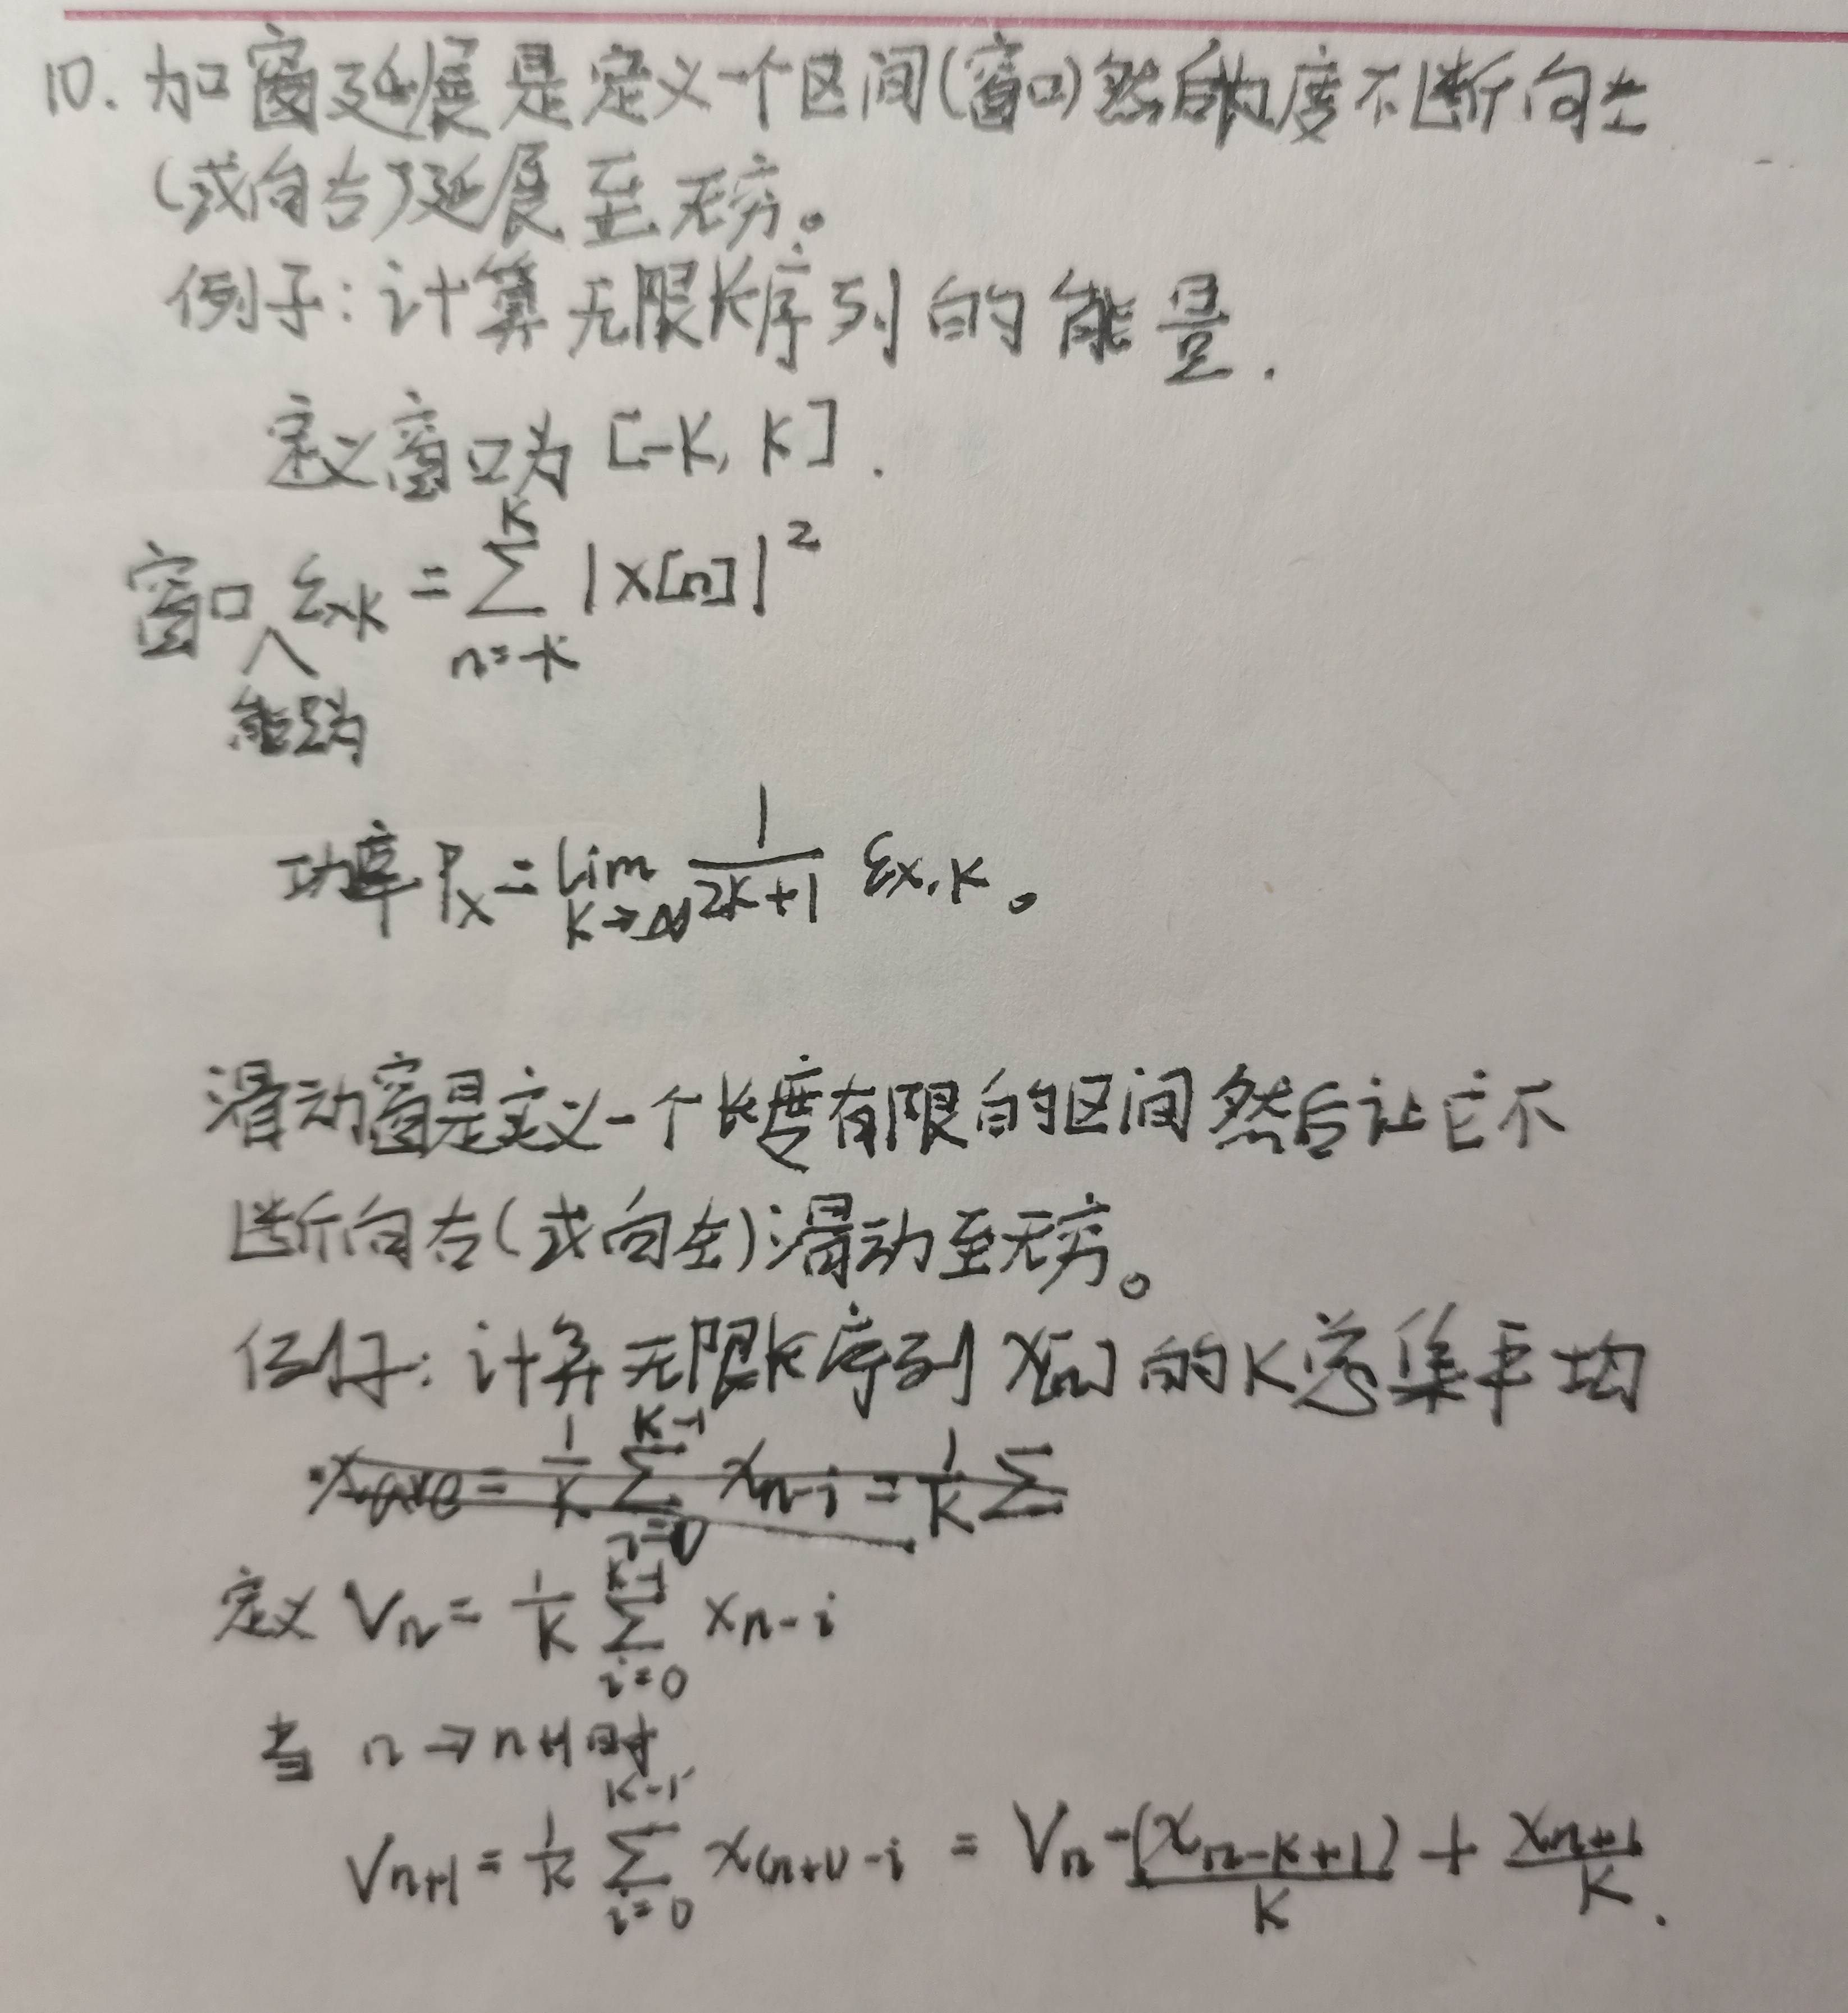 10. 加窗延展是定义一个区间(窗口)然后长度不断向左
(或向右)延展至无穷。
例子:计算无限长序列的能量.
定义窗口为 [-K, K].
窗口能量为 ε_{x,K} = \sum_{n=-K}^{K} |x[n]|^2
功率 P_x = \lim_{K→∞} \frac{1}{2K+1} ε_{x,K}。
滑动窗是定义一个长度有限的区间然后让它不
断向右(或向左)滑动至无穷。
例子:计算无限长序列 x[n] 的K总集平均
定义 V_n = \frac{1}{K} \sum_{i=0}^{K-1} x_{n-i}
当 n→n+1时
V_{n+1} = \frac{1}{K} \sum_{i=0}^{K-1} x_{(n+1)-i} = V_n - \frac{(x_{n-K+1})}{K} + \frac{x_{n+1}}{K}.